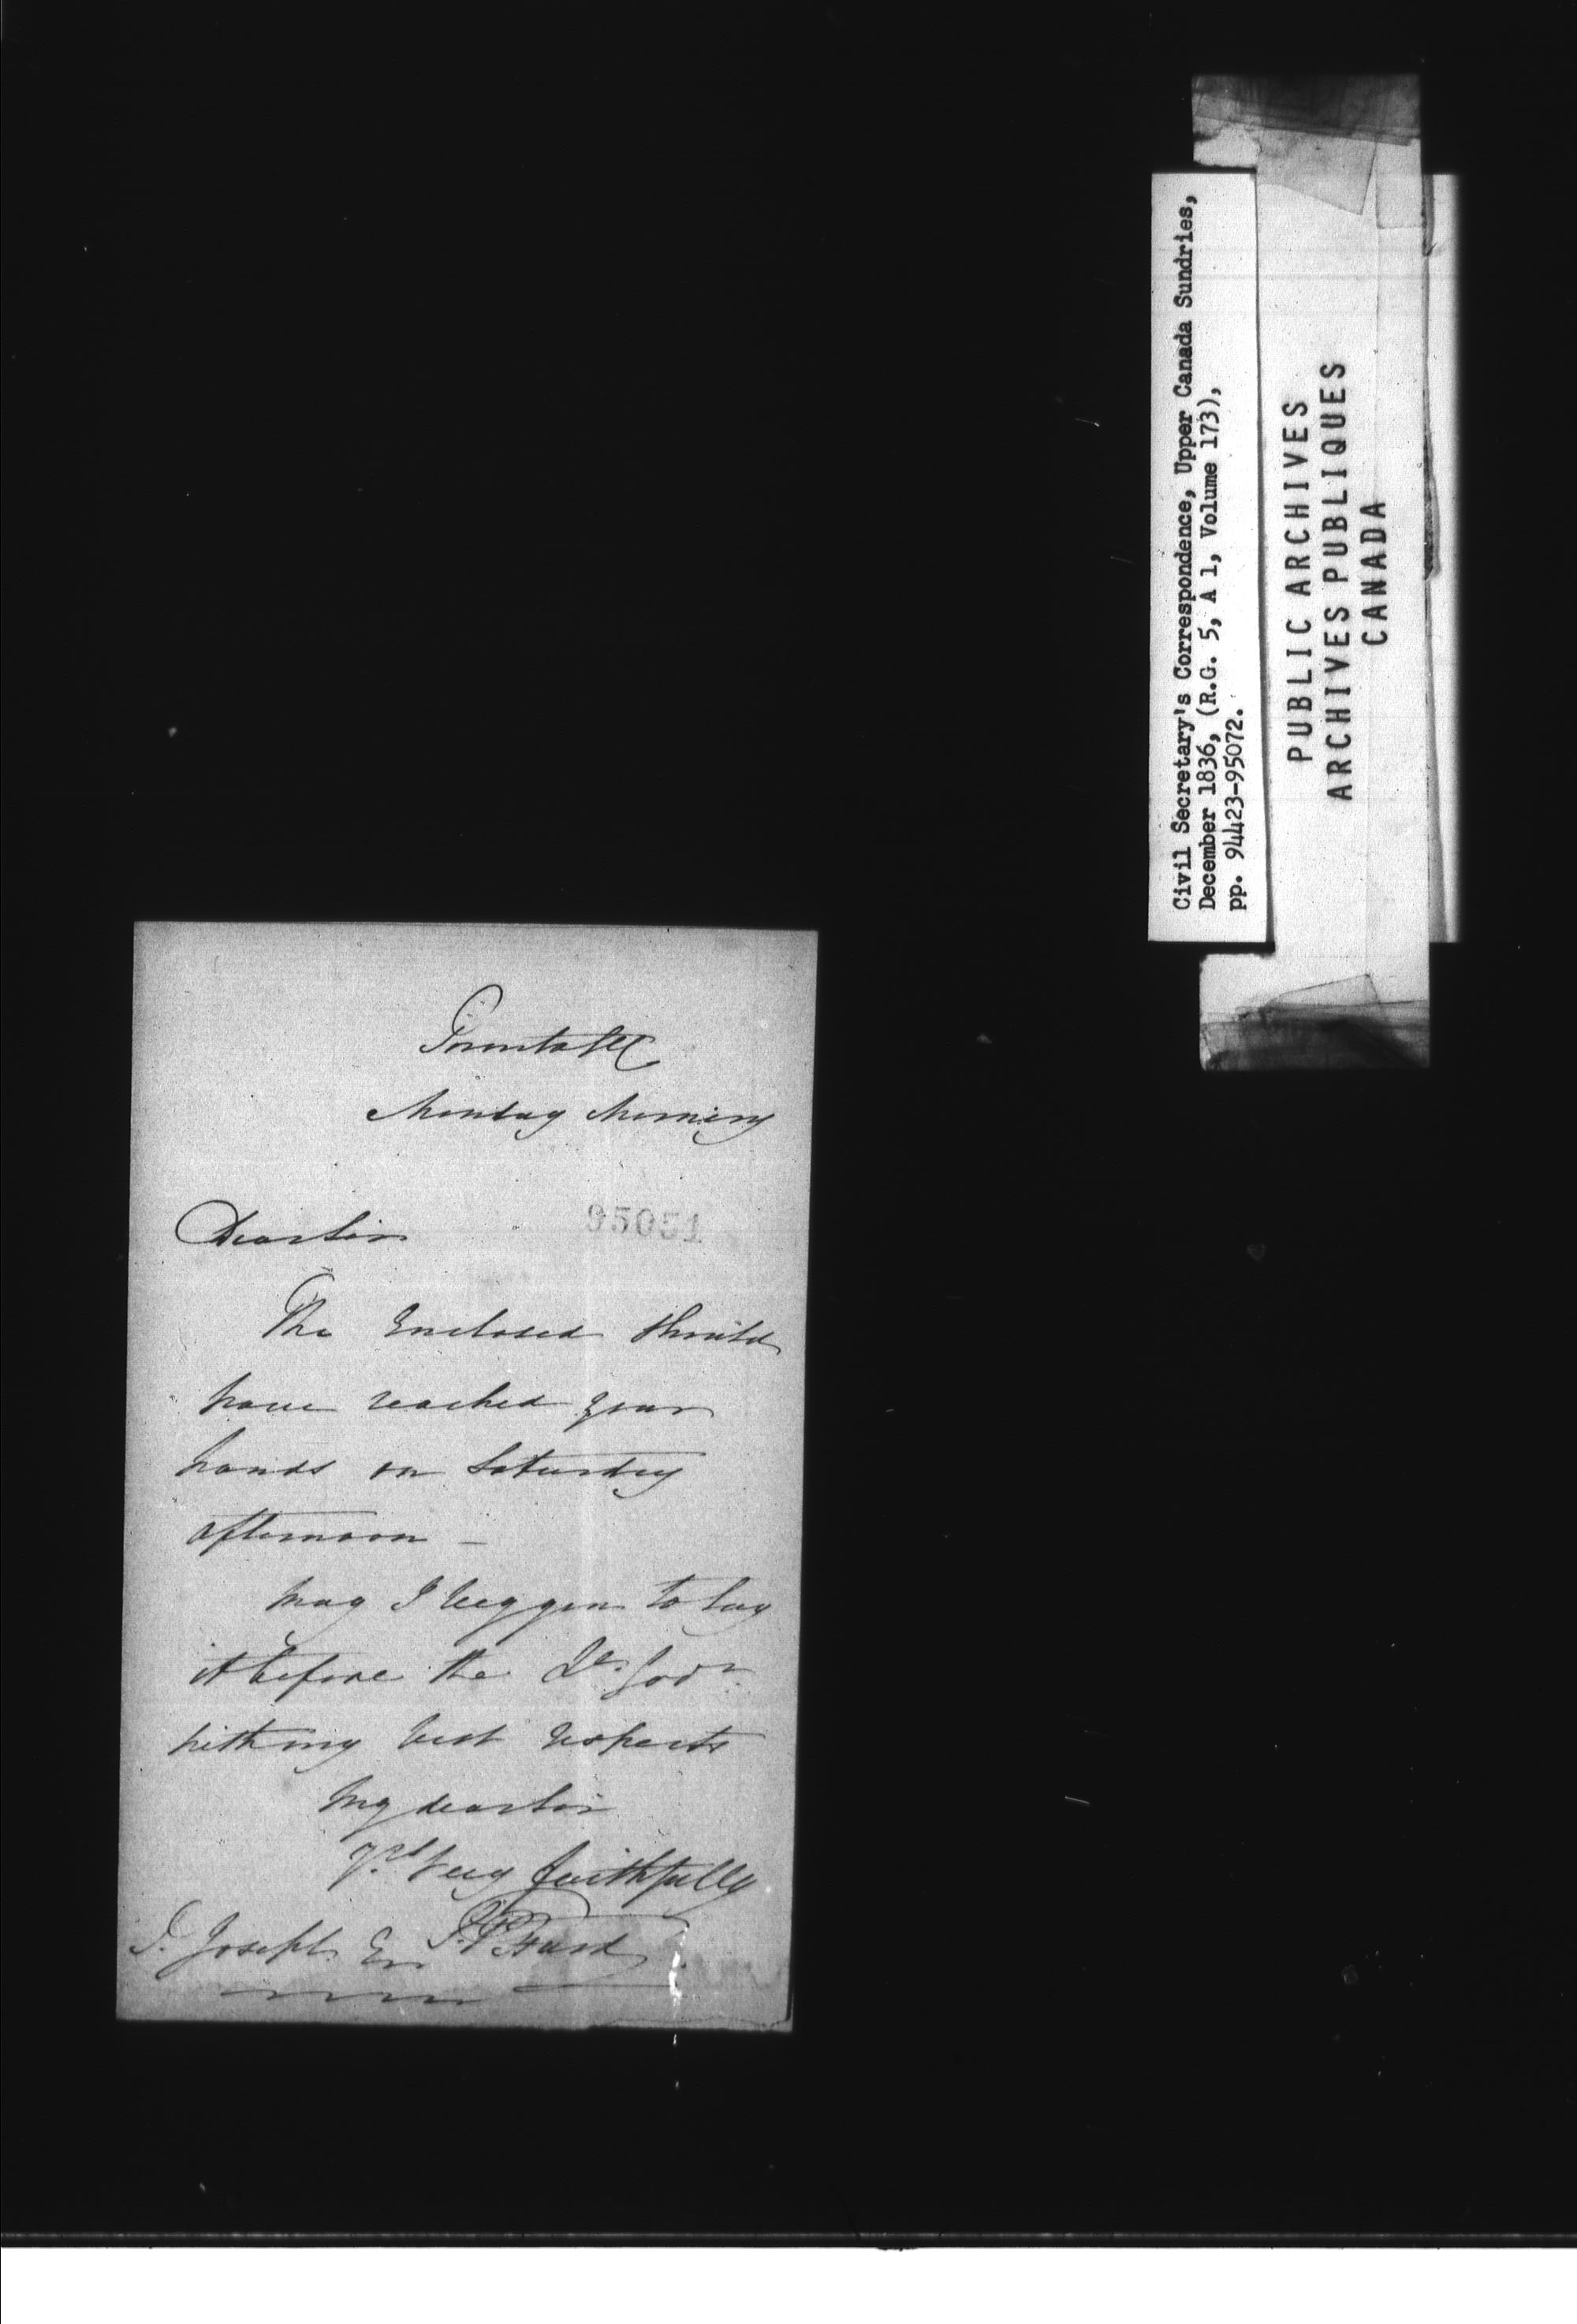 Monday Morning
95051
Dear Sir
The Enclosed should
have reached your
hands on Saturday
afternoon —
May I beg you to lay
it before the Lt. Govr.
with my best respects
My dear Sir
Yrs. very faithfully
J. Joseph Esq
Civil Secretary's Correspondence, Upper Canada Sundries,
December 1836, (R.G. 5, A 1, Volume 173),
pp. 94423-95072.
PUBLIC ARCHIVES
ARCHIVES PUBLIQUES
CANADA